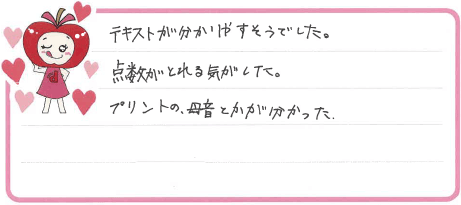 テキストが分かりやすそうでした。
点数がとれる気がした。
プリントの、母音とかが分かった.